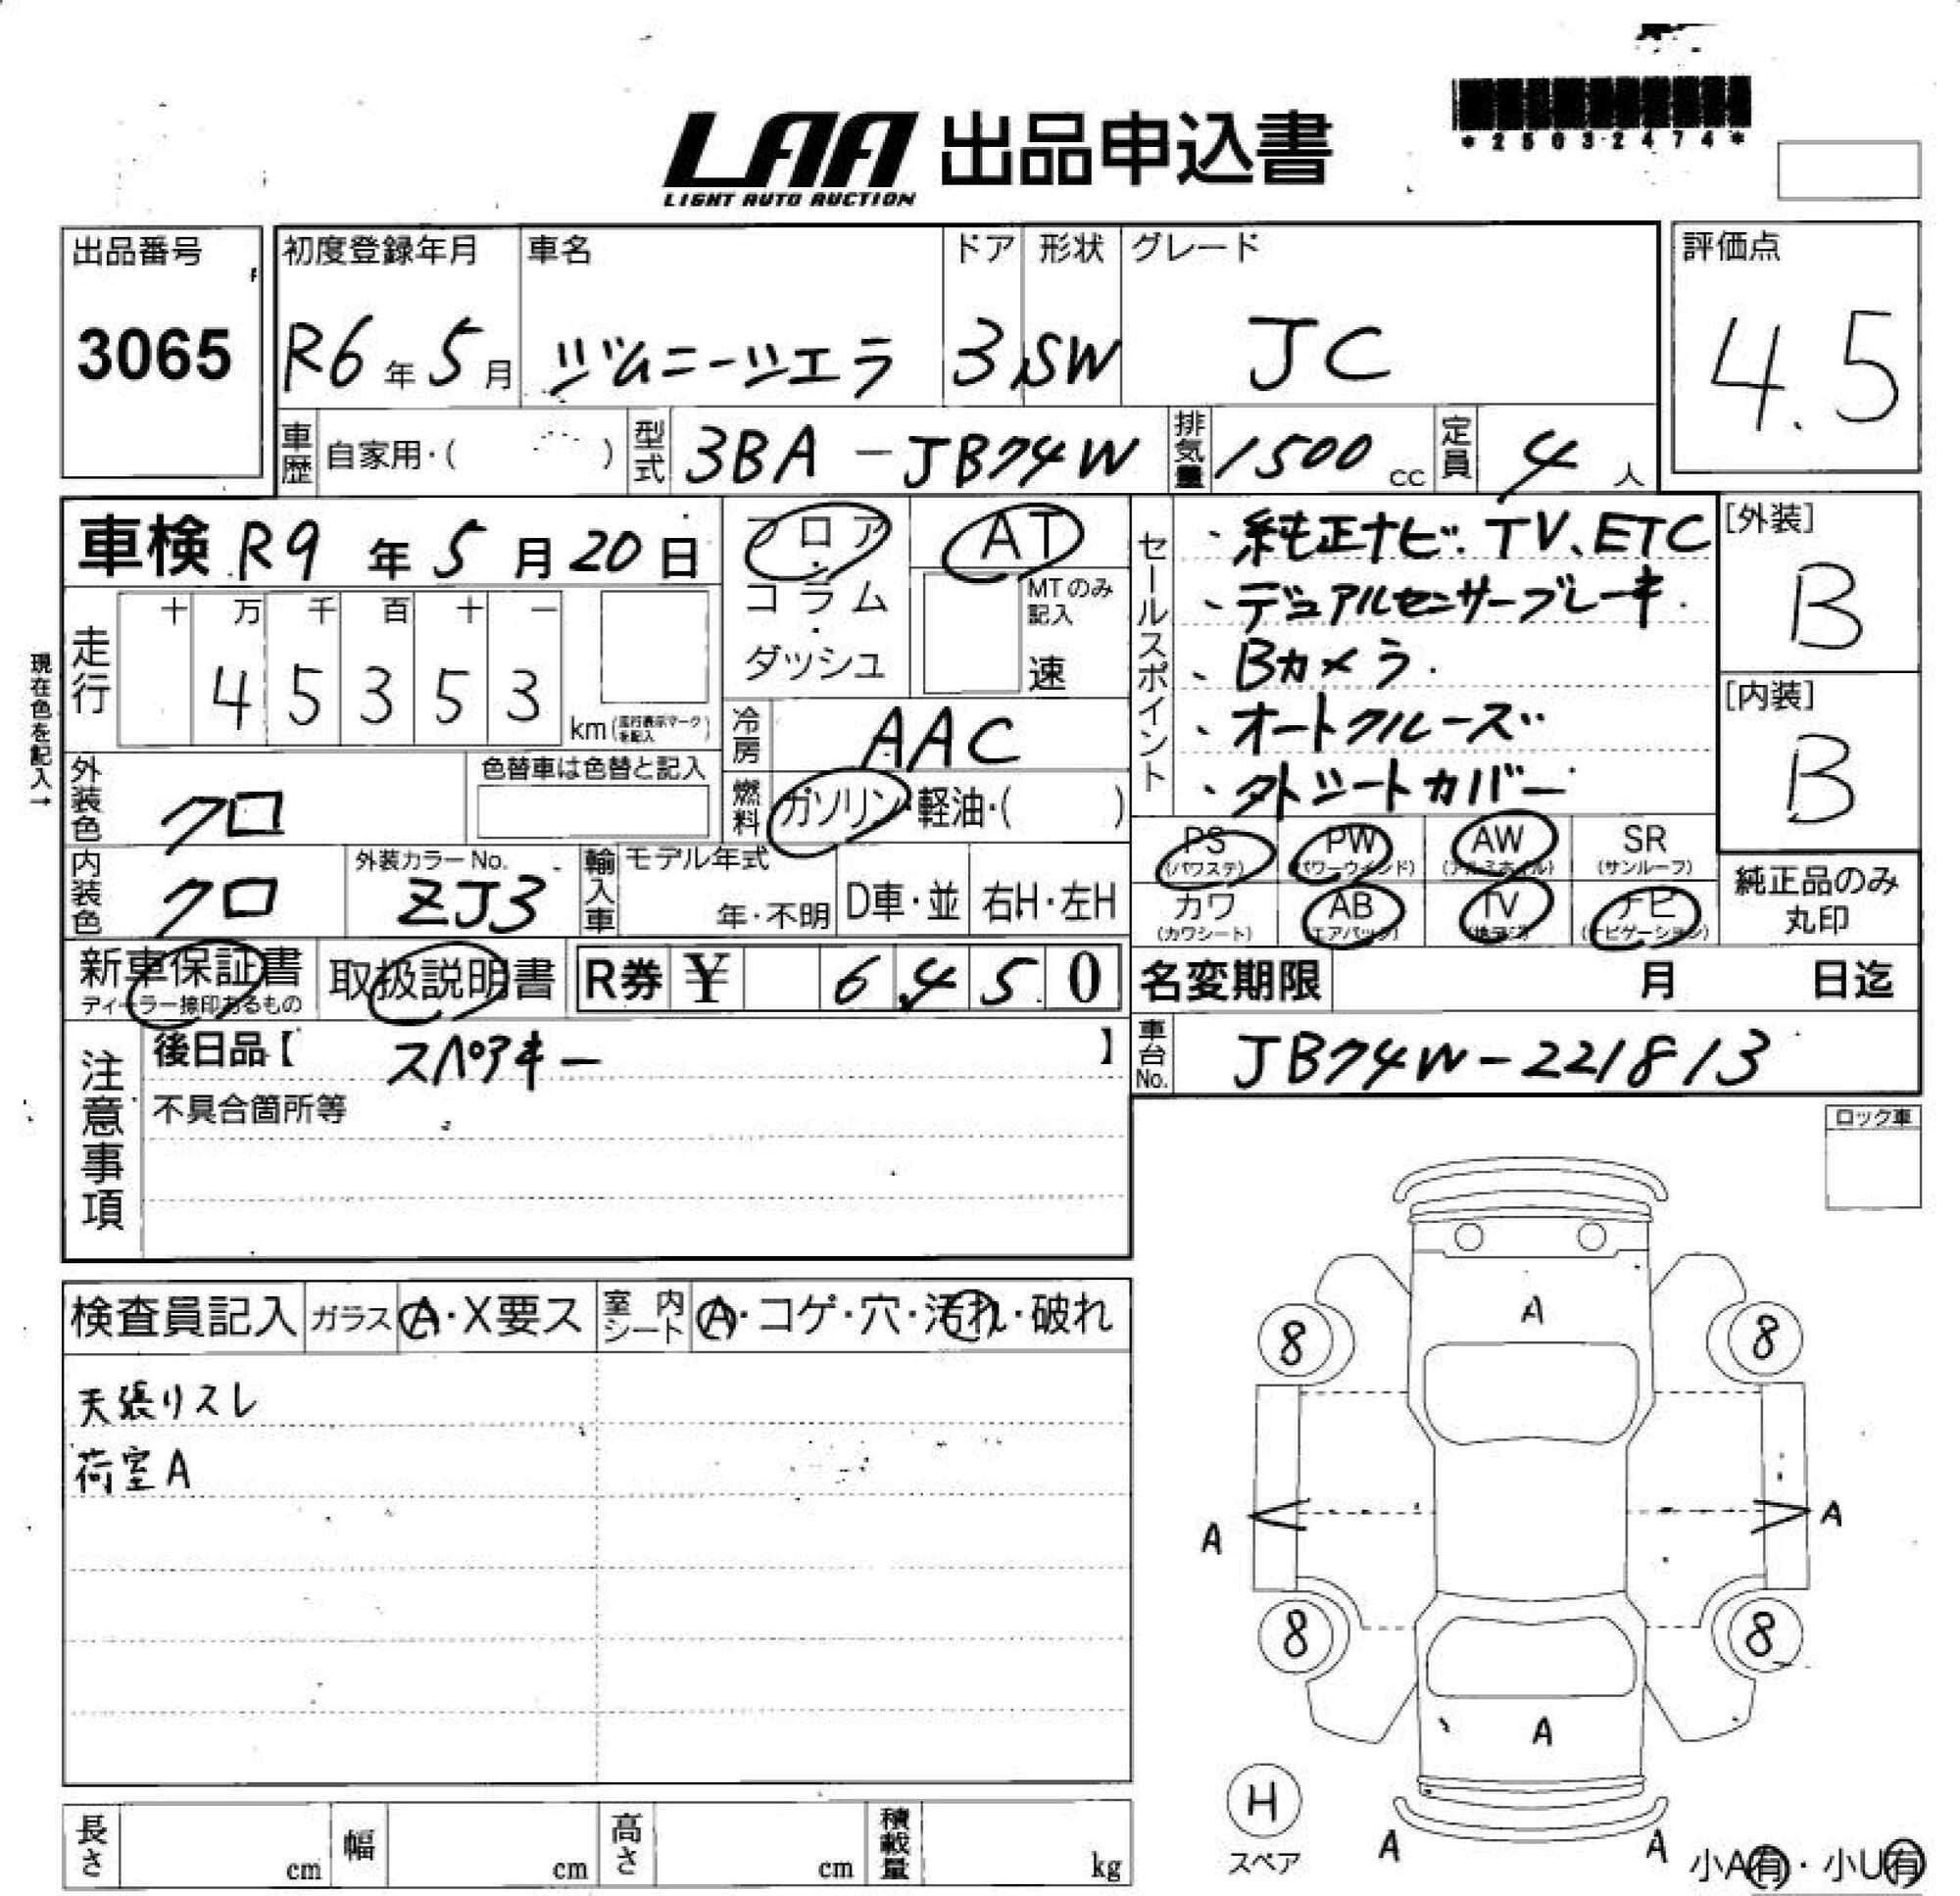 LAA 出品申込書
LIGHT AUTO AUCTION
*25032474*
出品番号
3065
初度登録年月
R6年5月
車名
ジムニーシエラ
ドア
3
形状
SW
グレード
JC
評価点
4.5
車歴
自家用・( )
型式
3BA-JB74W
排気量
1500cc
定員
4人
車検 R9年5月20日
走行
十万千百十一
45353
km(走行表示マークを記入)
現在色を記入→
フロア・コラム・ダッシュ
AT
MTのみ記入
速
冷房
AAC
燃料
ガソリン・軽油・( )
外装色
クロ
色替車は色替と記入
内装色
クロ
外装カラーNo.
ZJ3
輸入車
モデル年式
年・不明
D車・並
右H・左H
セールスポイント
・純正ナビ.TV、ETC
、デュアルセンサーブレーキ.
、Bカメラ.
・オートクルーズ
・タトシートカバー
[外装]
B
[内装]
B
PS
(パワステ)
PW
(パワーウインド)
AW
(アルミホイル)
SR
(サンルーフ)
カワ
(カワシート)
AB
(エアバック)
TV
ナビ
(ナビゲーション)
純正品のみ
丸印
新車保証書
ディーラー捺印あるもの
取扱説明書
R券 ¥ 6450
名変期限 月 日迄
車台No.
JB74W-221813
注意事項
後日品【 スペアキー 】
不具合箇所等
ロック車
検査員記入
ガラス
A・X要ス
室内シート
A・コゲ・穴・汚れ・破れ
天張リスレ
荷室A
A
8
8
A
A
8
8
A
H
スペア
A
A
小A有・小U有
長さ
cm
幅
cm
高さ
cm
積載量
kg